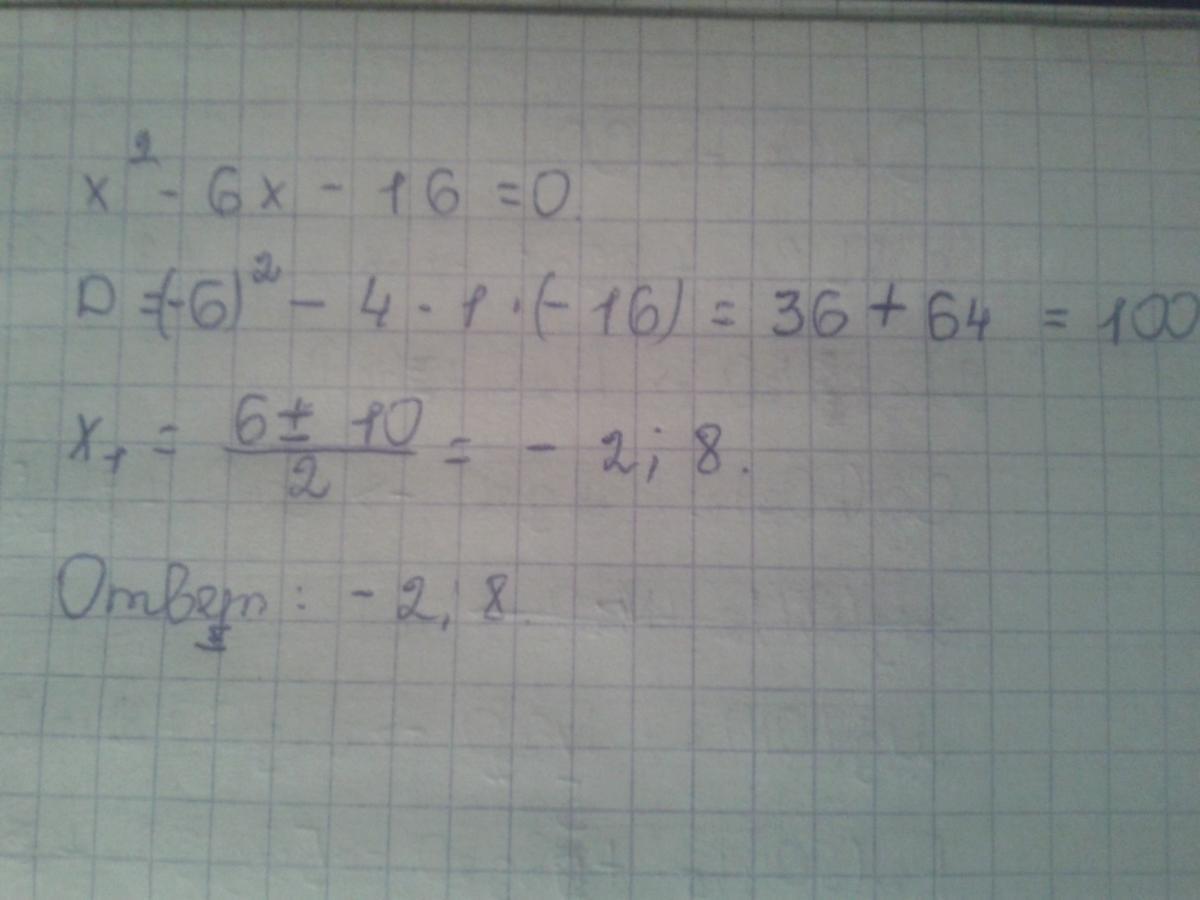 x² - 6x - 16 = 0
D = (-6)² - 4 · 1 · (-16) = 36 + 64 = 100
x₁ = (6 ± 10)/2 = - 2; 8.
Ответ: - 2; 8.